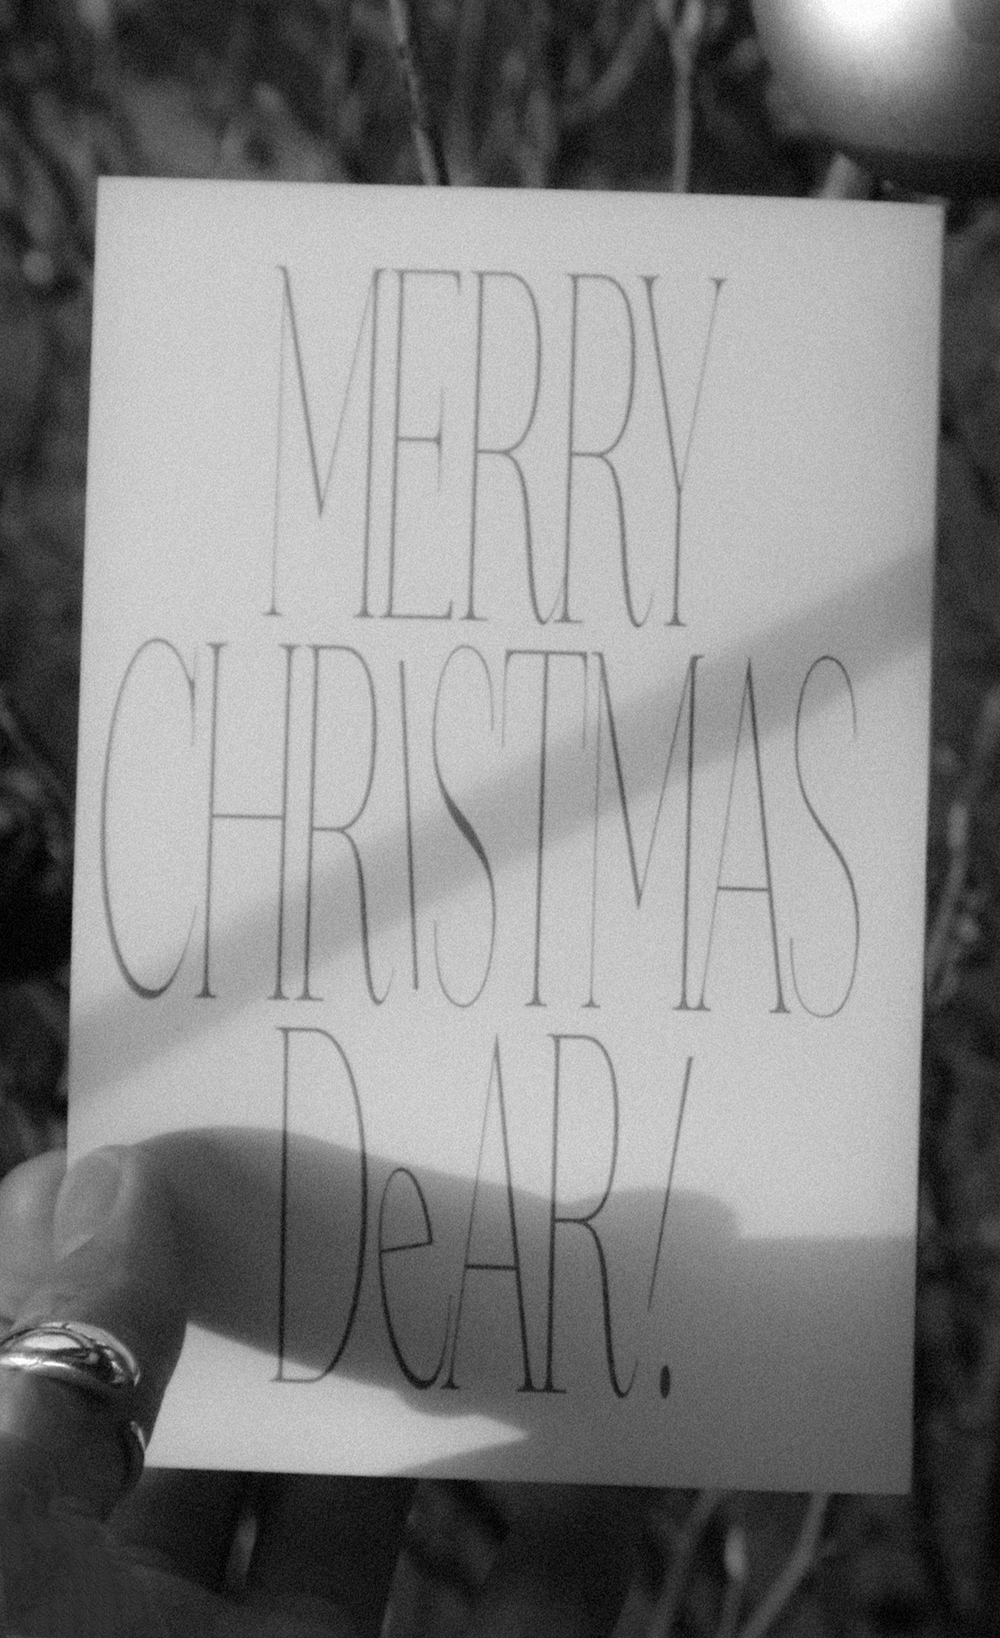 MERRY
CHRISTMAS
DeAR!